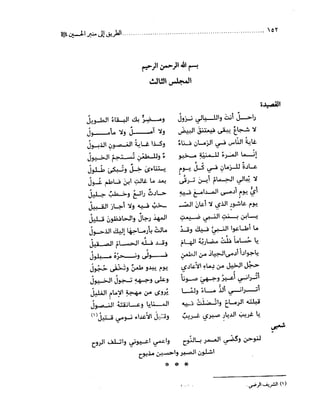 ١٥٢ ........ الطريق إلى منبر الحسين ﷺ
بسم الله الرحمن الرحيم
المجلس الثالث
القصيدة
راحل أنت والليالي نزول ومضر بك البقاء الطويل
لا شجاع يبقى فيعتنق البيض ولا آمل ولا مأمول
غاية الناس في الزمان فناء وكذا غاية الغصون الذبول
إنما المرء للمنية مخبو ء وللطعن تستجم الخيول
عادة للزمان في كل يوم يتناءى خل وتبكى طلول
لا يبالي الحمام أين ترقى بعد ما غالت ابن فاطم غول
أي يوم أدمى المدامع فيه حادث رائع وخطب جليل
يوم عاشور الذي لا أعان الصحب فيه ولا أجار القبيل
يا ابن بنت النبي ضيعت العهد رجال والحافظون قليل
ما أطاعوا النبي فيك وقد مالت بأرماحها إليك الذحول
يا حساماً فلت مضاربه الهام وقد فله الحسام الصقيل
يا جواداً أدمى الجواد من الطعن وولى ونحره مبلول
حجل الخيل من دماء الأعادي يوم يبدو طعن وتخفى حجول
أتراني أعير وجهي صوناً وعلى وجهه تجول الخيول
أتراني ألذ ماء ولما يروى من مهجة الإمام الغليل
قبلته الرماح وانتضلت فيه المنايا وعانقته النصول
يا غريب الديار صبري غريب وقتيل الأعداء نومي قتيل(١)
شعبي
لنوحن وگضي العمر بالنوح واعمي اعيوني واتلف الروح
اشلون الصبر واحسين مذبوح
* * *
(١) الشريف الرضي.